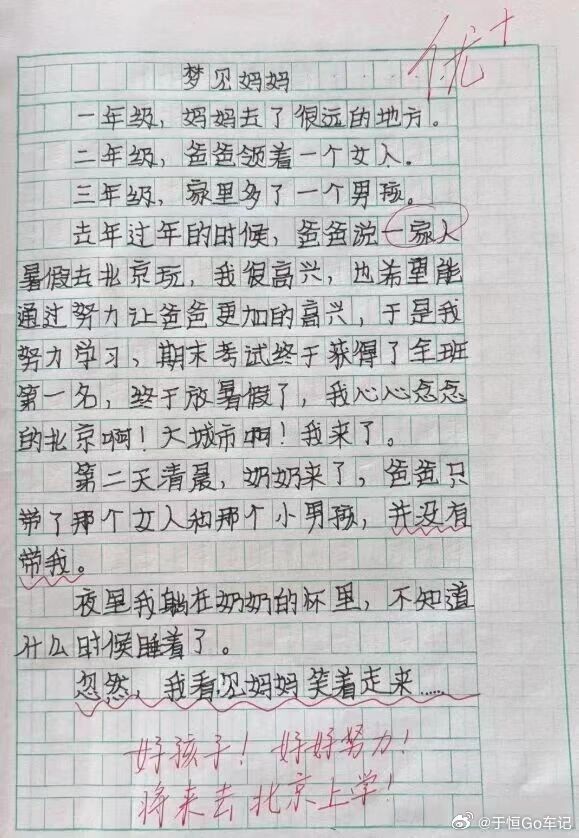 优+
梦见妈妈
一年级，妈妈去了很远的地方。
二年级，爸爸领着一个女人。
三年级，家里多了一个男孩。
去年过年的时候，爸爸说一家人
暑假去北京玩，我很高兴，也希望能
通过努力让爸爸更加的高兴，于是我
努力学习，期末考试终于获得了全班
第一名，终于放暑假了，我心心念念
的北京啊！大城市啊！我来了。
第二天清晨，奶奶来了，爸爸只
带了那个女人和那个小男孩，并没有
带我。
夜里我躺在奶奶的怀里，不知道
什么时候睡着了。
忽然，我看见妈妈笑着走来……
好孩子！好好努力！
将来去北京上学！
@于恒Go车记